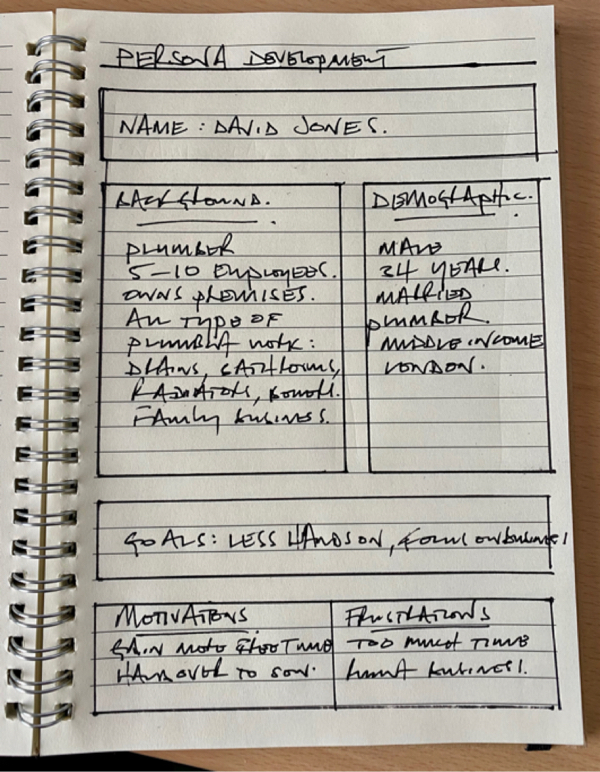 PERSONA DEVELOPMENT
NAME : DAVID JONES.
BACKGROUND.
PLUMBER
5-10 EMPLOYEES.
OWNS PREMISES.
ALL TYPE OF
WORK:
DRAINS, BATHROOMS,
RADIATORS,
FAMILY BUSINESS.
DEMOGRAPHIC.
MALE
34 YEARS.
MARRIED
PLUMBER.
MIDDLE INCOME
LONDON.
GOALS: LESS HANDS ON, FOCUS ON BUSINESS
MOTIVATIONS
GAIN MORE FREE TIME
HANDOVER TO SON.
FRUSTRATIONS
TOO MUCH TIME
BUSINESS.